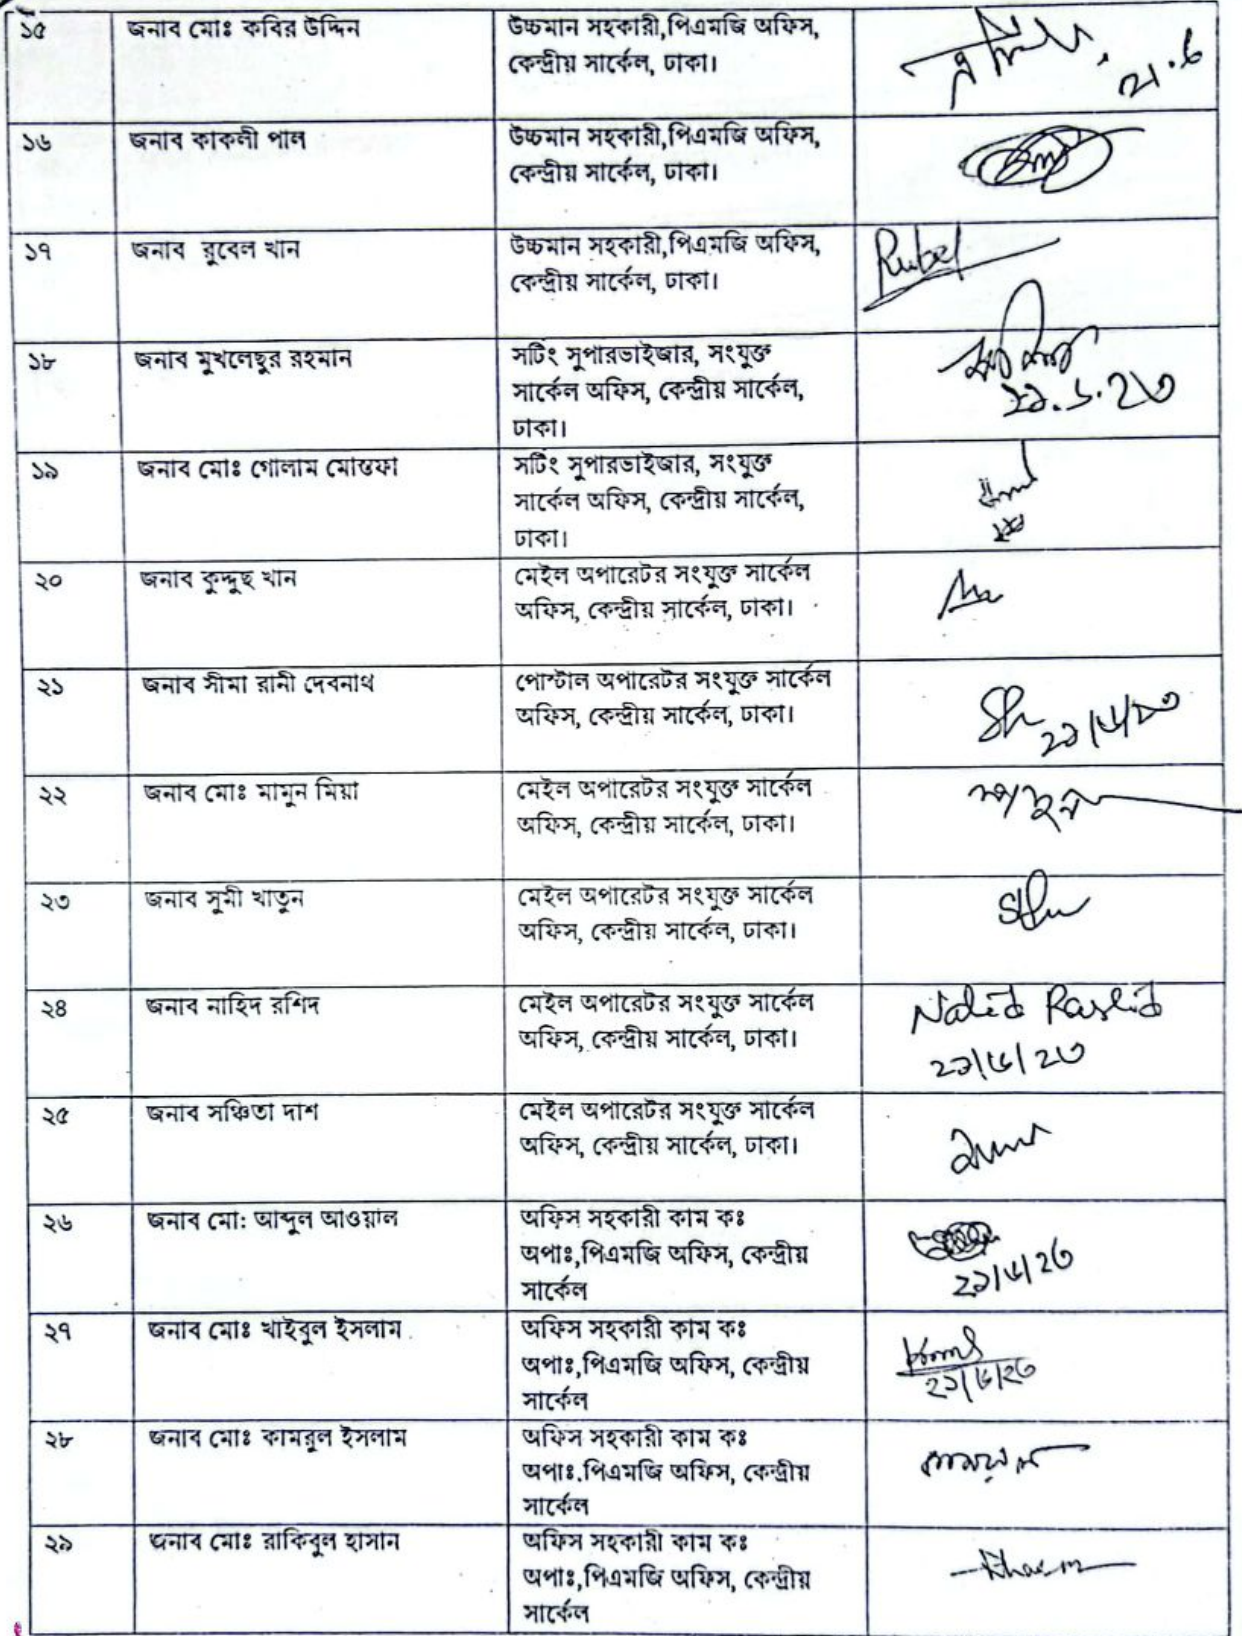 ১৫ জনাব মোঃ কবির উদ্দিন উচ্চমান সহকারী,পিএমজি অফিস,
কেন্দ্রীয় সার্কেল, ঢাকা।
১৬ জনাব কাকলী পাল উচ্চমান সহকারী,পিএমজি অফিস,
কেন্দ্রীয় সার্কেল, ঢাকা।
১৭ জনাব রুবেল খান উচ্চমান সহকারী,পিএমজি অফিস, Rubel
কেন্দ্রীয় সার্কেল, ঢাকা।
১৮ জনাব মুখলেছুর রহমান সটিং সুপারভাইজার, সংযুক্ত
সার্কেল অফিস, কেন্দ্রীয় সার্কেল,
ঢাকা।
১৯ জনাব মোঃ গোলাম মোস্তফা সটিং সুপারভাইজার, সংযুক্ত
সার্কেল অফিস, কেন্দ্রীয় সার্কেল,
ঢাকা।
২০ জনাব কুদ্দুছ খান মেইল অপারেটর সংযুক্ত সার্কেল
অফিস, কেন্দ্রীয় সার্কেল, ঢাকা।
২১ জনাব সীমা রানী দেবনাথ পোস্টাল অপারেটর সংযুক্ত সার্কেল
অফিস, কেন্দ্রীয় সার্কেল, ঢাকা। ২১/৬/২৩
২২ জনাব মোঃ মামুন মিয়া মেইল অপারেটর সংযুক্ত সার্কেল
অফিস, কেন্দ্রীয় সার্কেল, ঢাকা।
২৩ জনাব সুমী খাতুন মেইল অপারেটর সংযুক্ত সার্কেল
অফিস, কেন্দ্রীয় সার্কেল, ঢাকা।
২৪ জনাব নাহিদ রশিদ মেইল অপারেটর সংযুক্ত সার্কেল Nahid Rashid
অফিস, কেন্দ্রীয় সার্কেল, ঢাকা। ২১/৬/২৩
২৫ জনাব সঞ্চিতা দাশ মেইল অপারেটর সংযুক্ত সার্কেল
অফিস, কেন্দ্রীয় সার্কেল, ঢাকা।
২৬ জনাব মো: আব্দুল আওয়াল অফিস সহকারী কাম কঃ
অপাঃ,পিএমজি অফিস, কেন্দ্রীয়
সার্কেল ২১/৬/২৩
২৭ জনাব মোঃ খাইবুল ইসলাম অফিস সহকারী কাম কঃ
অপাঃ,পিএমজি অফিস, কেন্দ্রীয় ২১/৬/২৩
সার্কেল
২৮ জনাব মোঃ কামরুল ইসলাম অফিস সহকারী কাম কঃ
অপাঃ,পিএমজি অফিস, কেন্দ্রীয়
সার্কেল
২৯ জনাব মোঃ রাকিবুল হাসান অফিস সহকারী কাম কঃ
অপাঃ,পিএমজি অফিস, কেন্দ্রীয়
সার্কেল